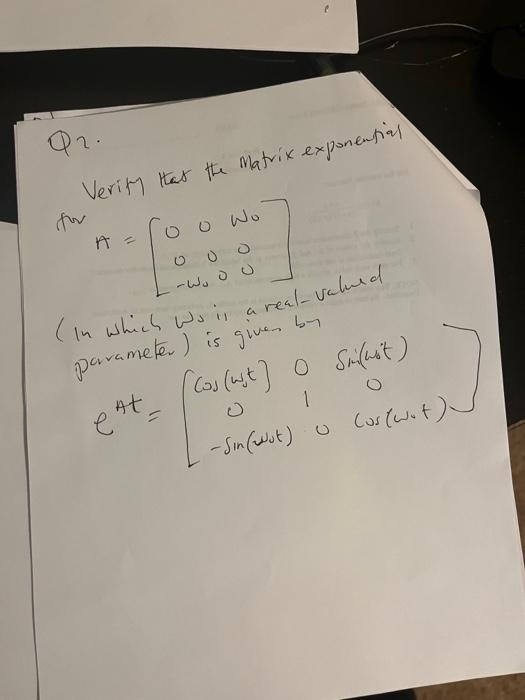 Q2.
Verify that the Matrix exponential
for
A = [0 0 W0
0 0 0
-W0 0 0]
(In which W0 is a real-valued
parameter) is given by
e^At = [Cos(W0t) 0 Sin(W0t)
0 1 0
-Sin(W0t) 0 Cos(W0t)]